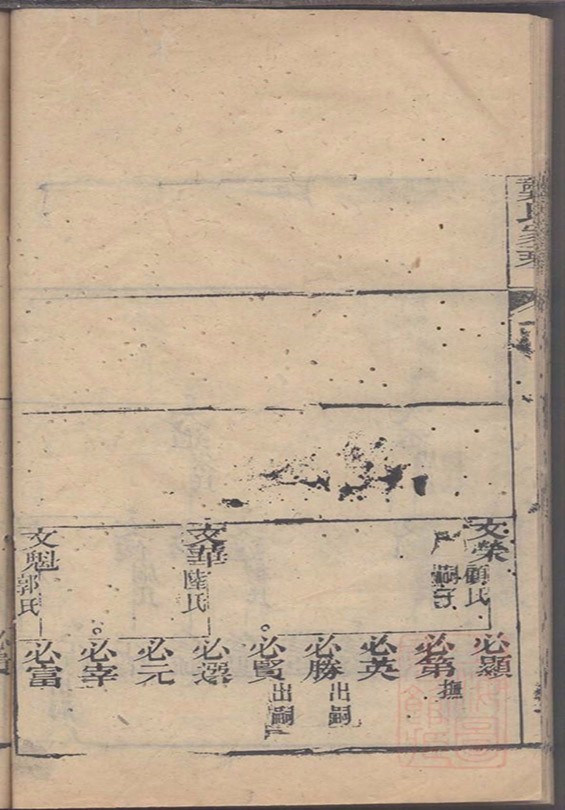 龔氏家乘
文榮
顧氏
嗣子
文華
陸氏
文魁
郭氏
必顯
必第
撫
必英
必勝
出嗣
必賢
出嗣
必選
必元
必宰
必富